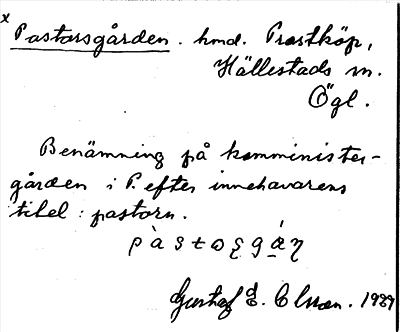 x
Pastorsgården. hmd. Prästköp,
Hällestads sn.
Ögl.
Benämning på komminister-
gården i P. efter innehavarens
titel: pastorn.
Gustaf E. Olsson. 1927